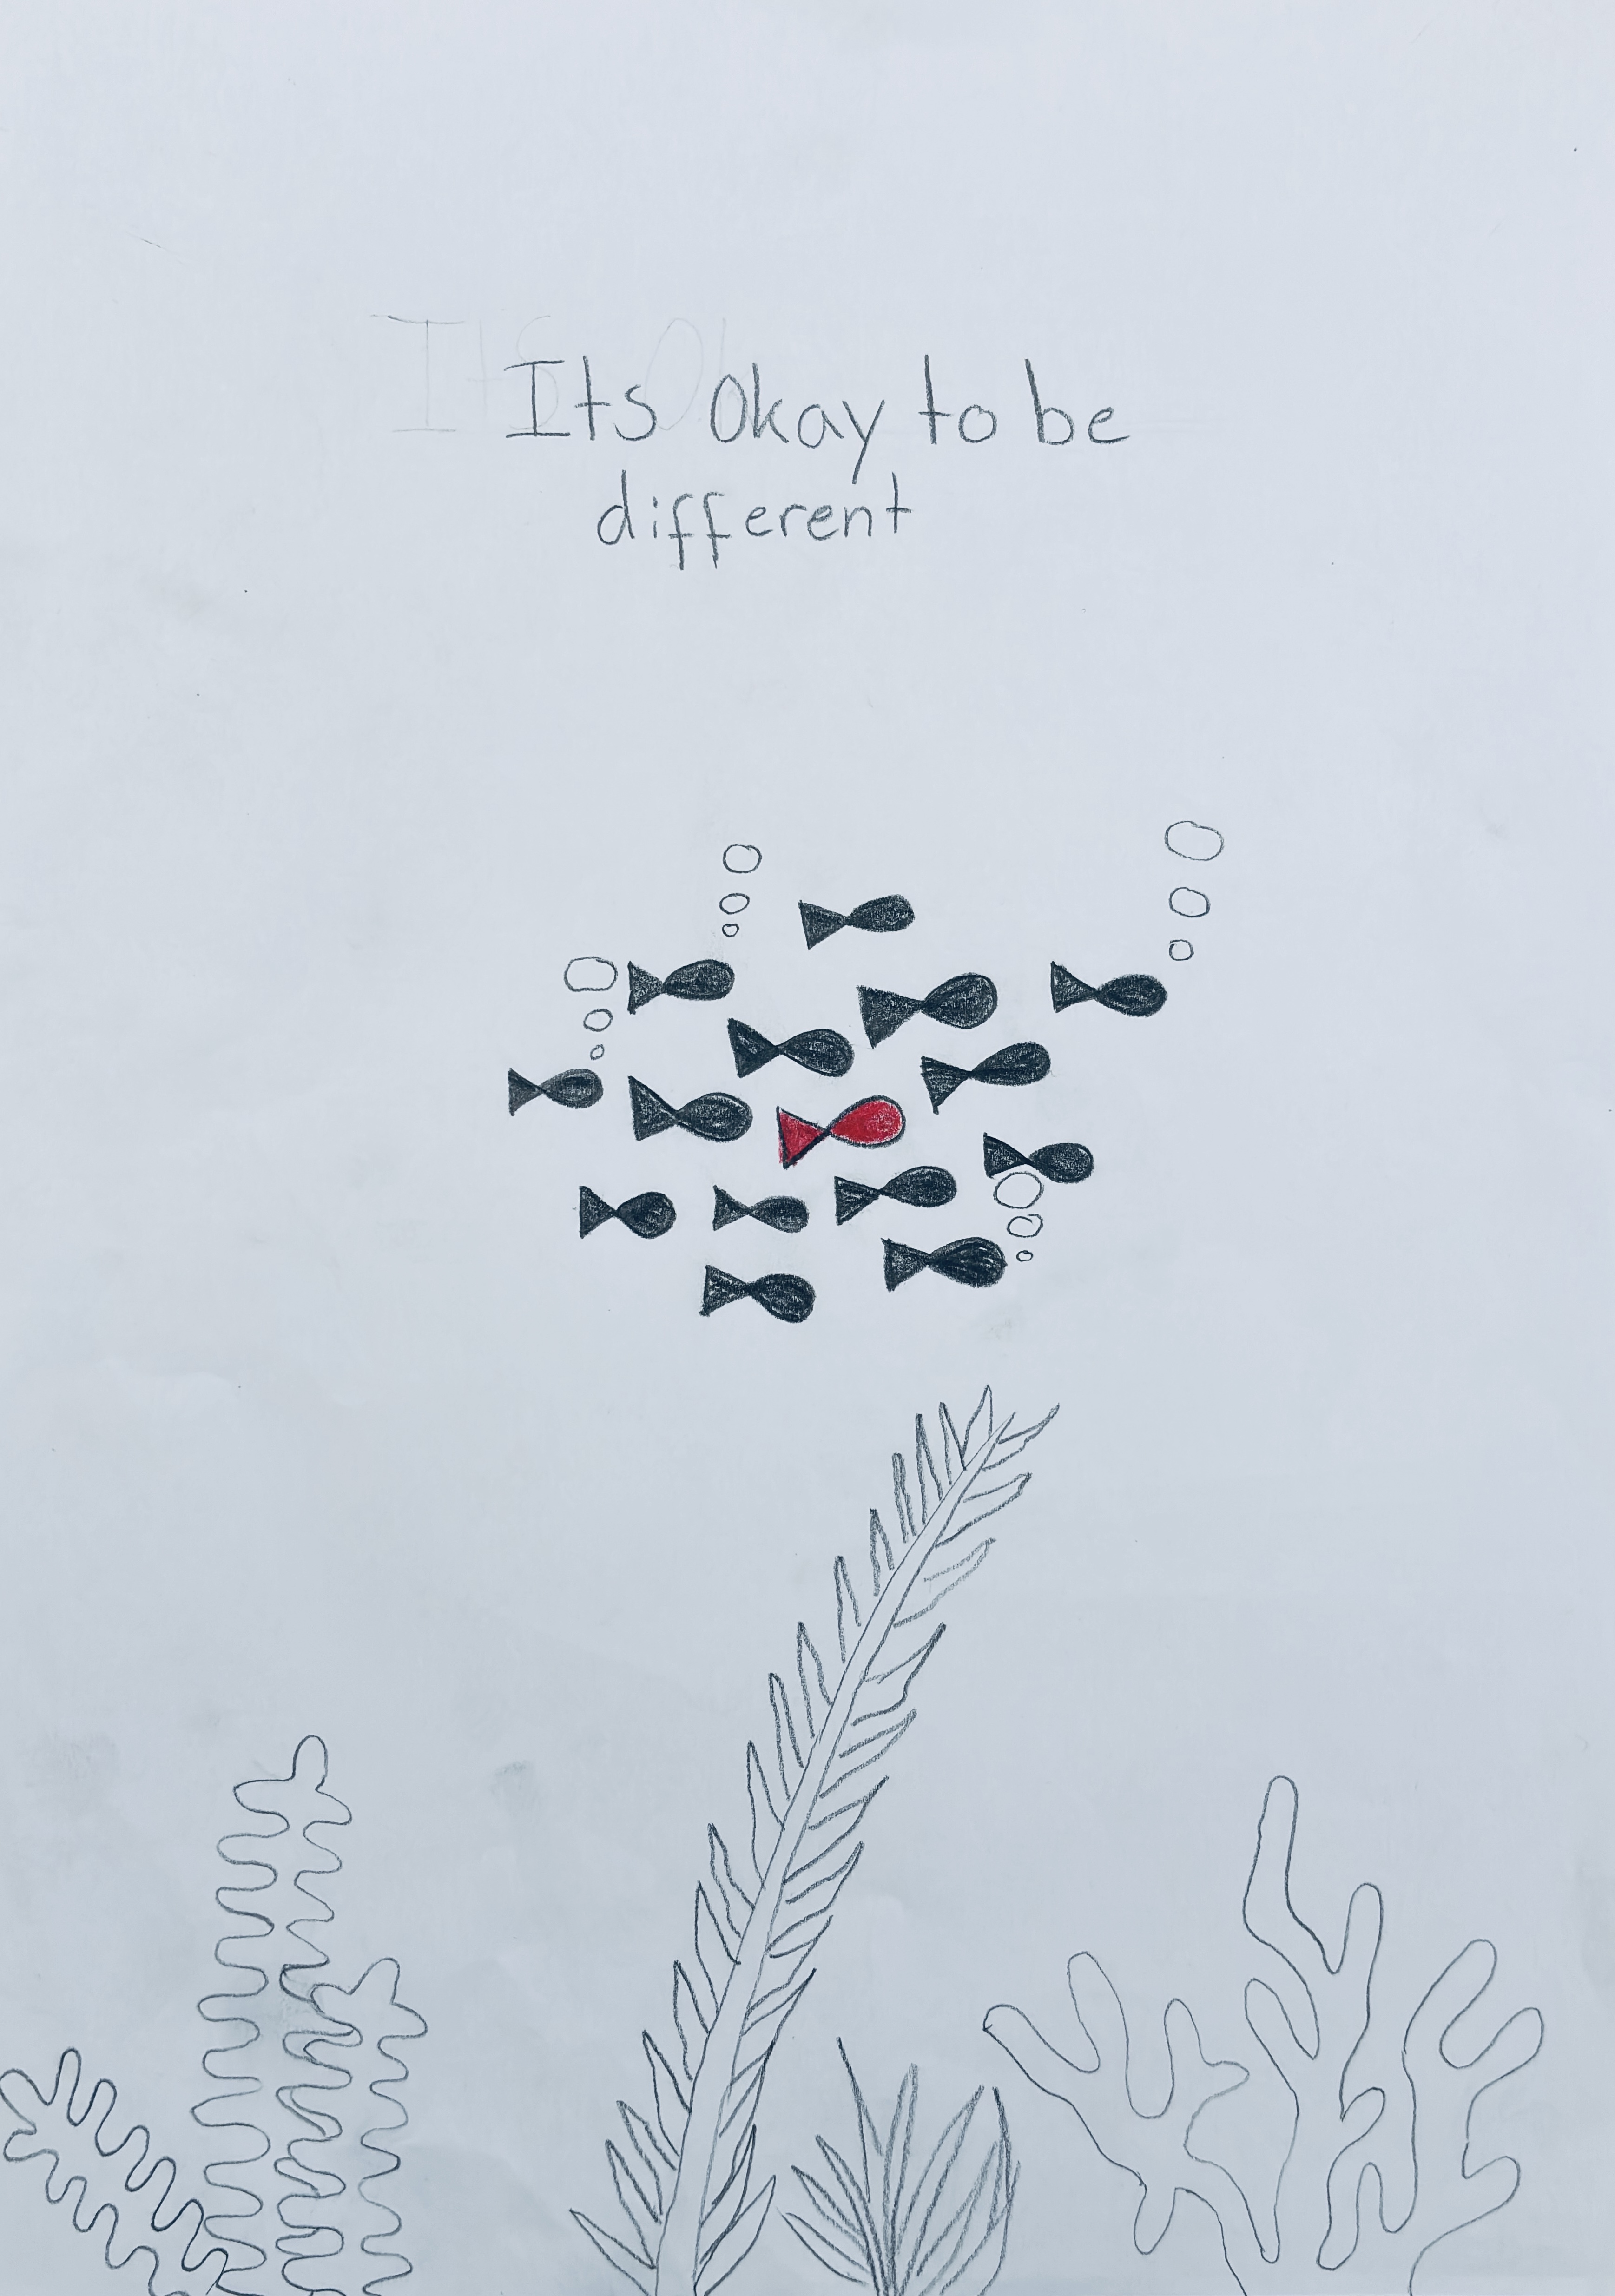 Its Okay to be
different